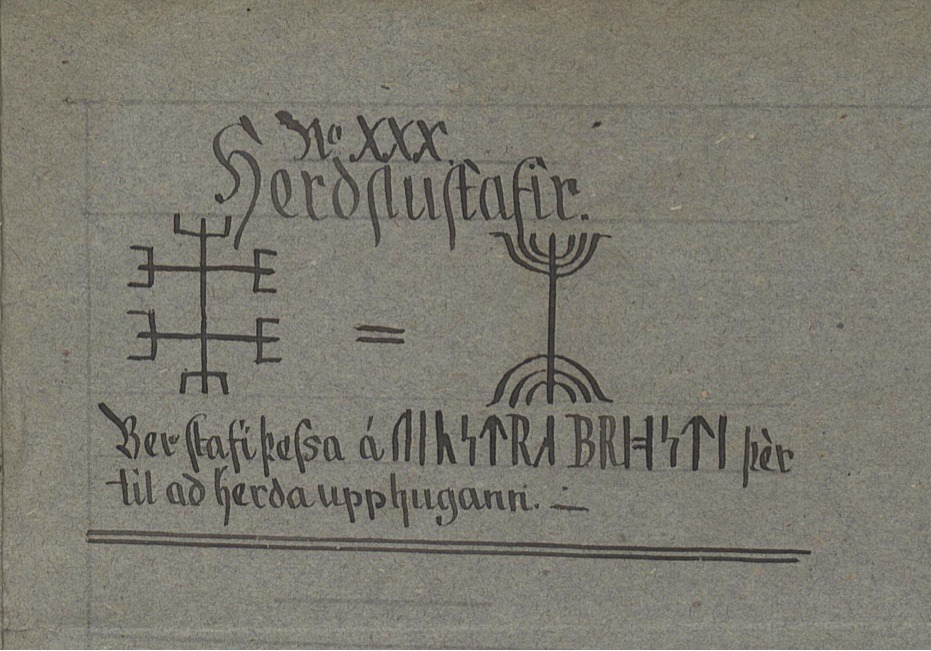 No XXX.
Herdſluſtafir.
Ber ſtafi þeſsa á ᚢᛁᚿᛋᛏᚱᛆ ᛒᚱᛁᚮᛋᛏᛁ þèr
til ad herda upp hugann.